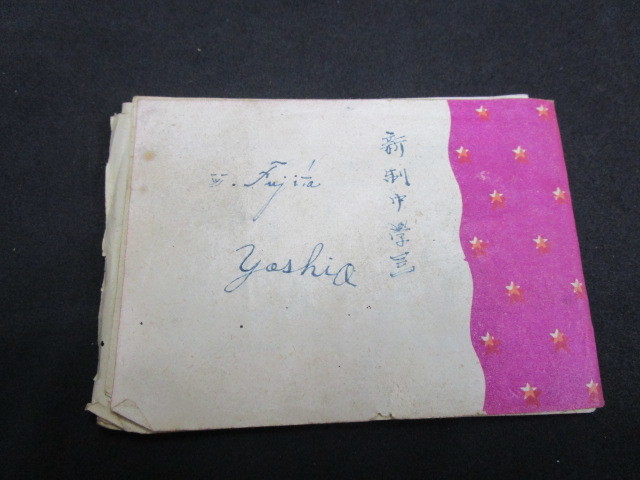 新制中学
Fujita
Yoshio